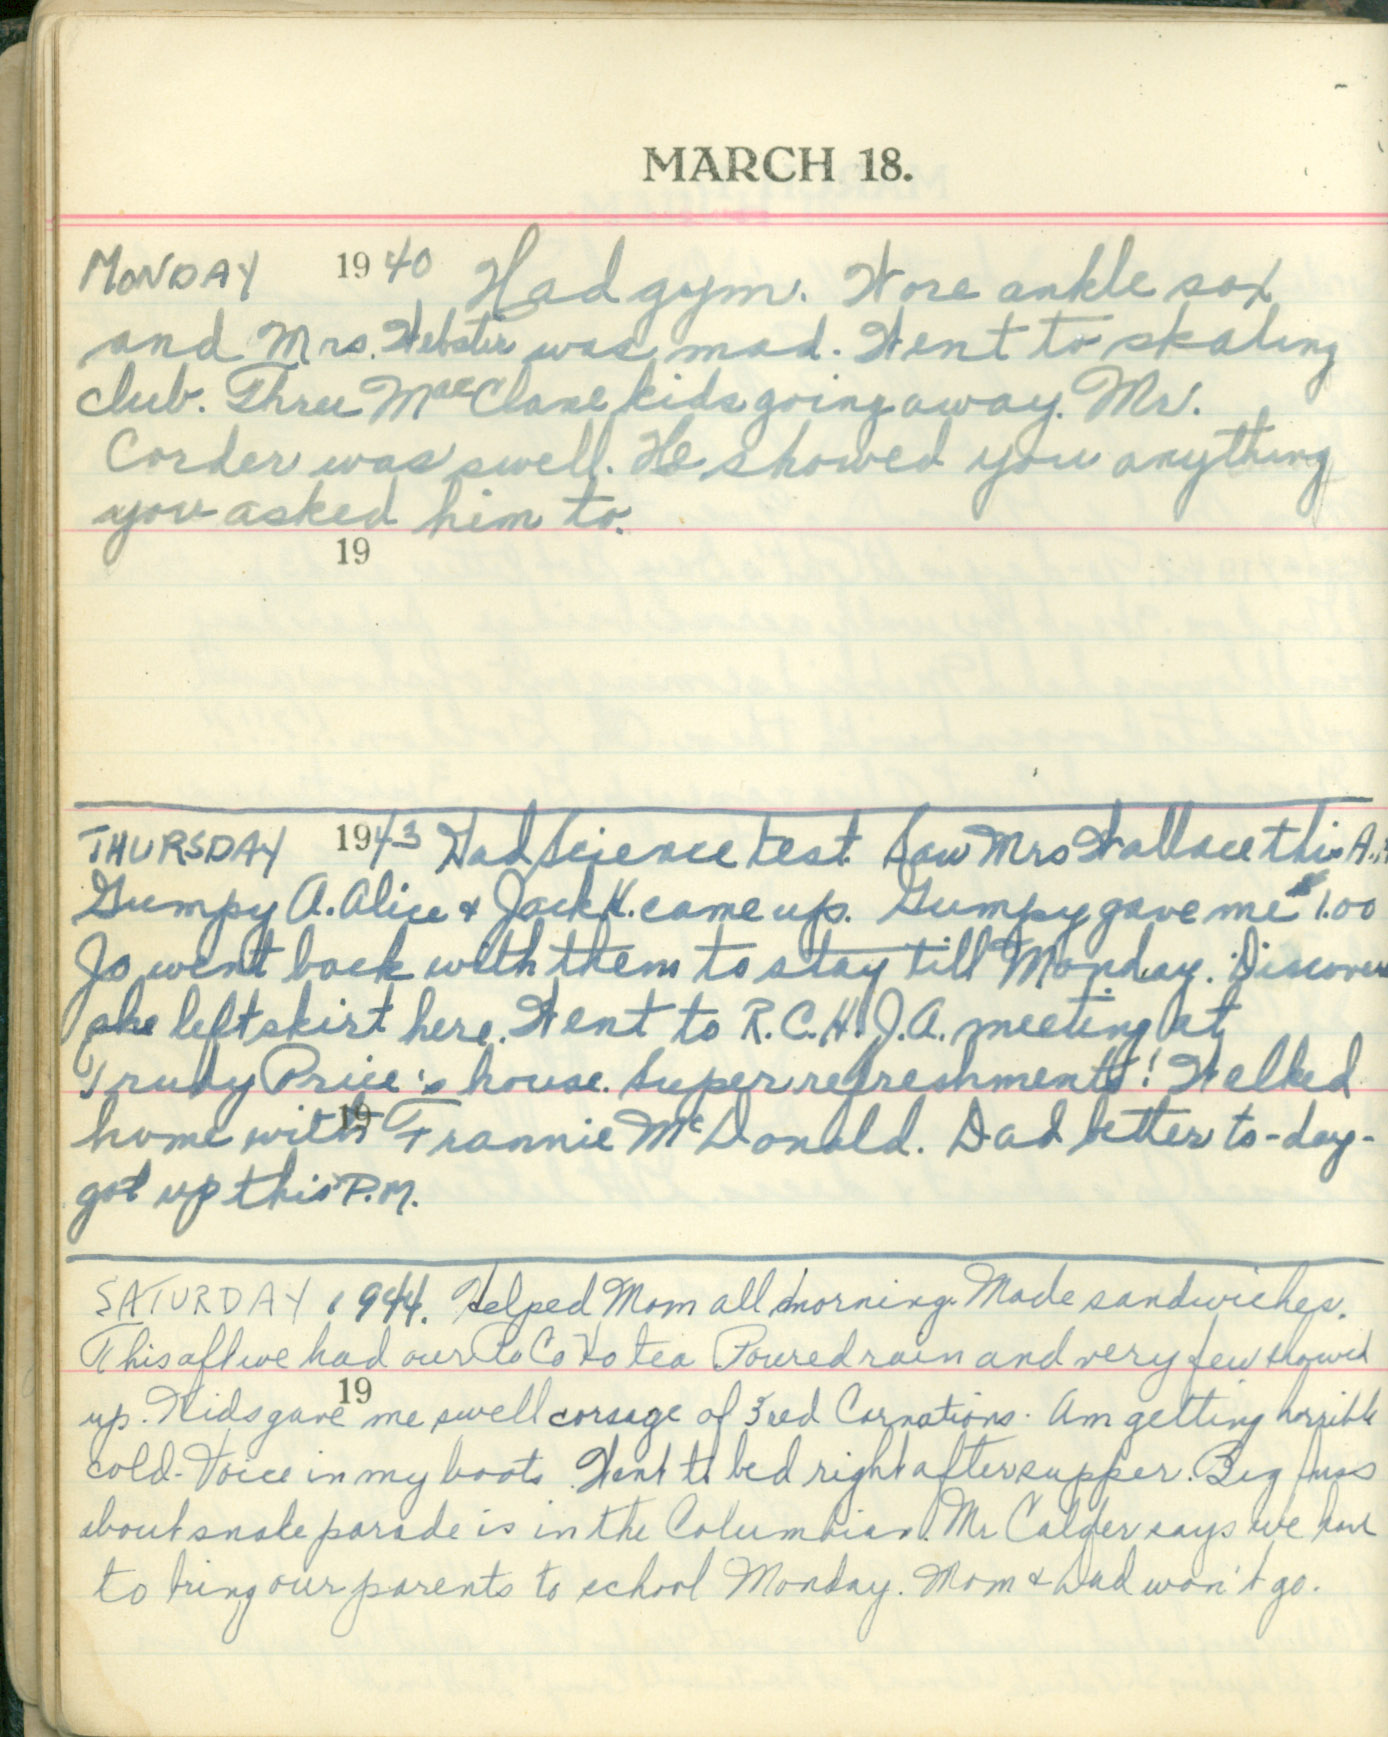 MARCH 18.
MONDAY 1940 Had gym. Wore ankle sox
and Mrs. Webster was mad. Went to skating
club. Three MacClane kids going away. Mr.
Corder was swell. He showed you anything
you asked him to.
19
THURSDAY 1943 Had Science test. Saw Mrs Wallace this A.M.
Gumpy A. Alice & Jack H. came up. Gumpy gave me $1.00
Jo went back with them to stay till Monday. Discovered
she left skirt here. Went to R.C.H.J.A. meeting at
Trudy Price's house. Super refreshments! Walked
19
home with Frannie McDonald. Dad better to-day-
got up this P.M.
SATURDAY 1944. Helped Mom all morning. Made sandwiches.
This aft we had our Ro Co Ho tea Poured rain and very few showed
19
up. Kids gave me swell corsage of 3 red Carnations. Am getting horrible
cold - Voice in my boots. Went to bed right after supper. Big fuss
about snake parade is in the Columbian. Mr Calder says we have
to bring our parents to school Monday. Mom & Dad won't go.